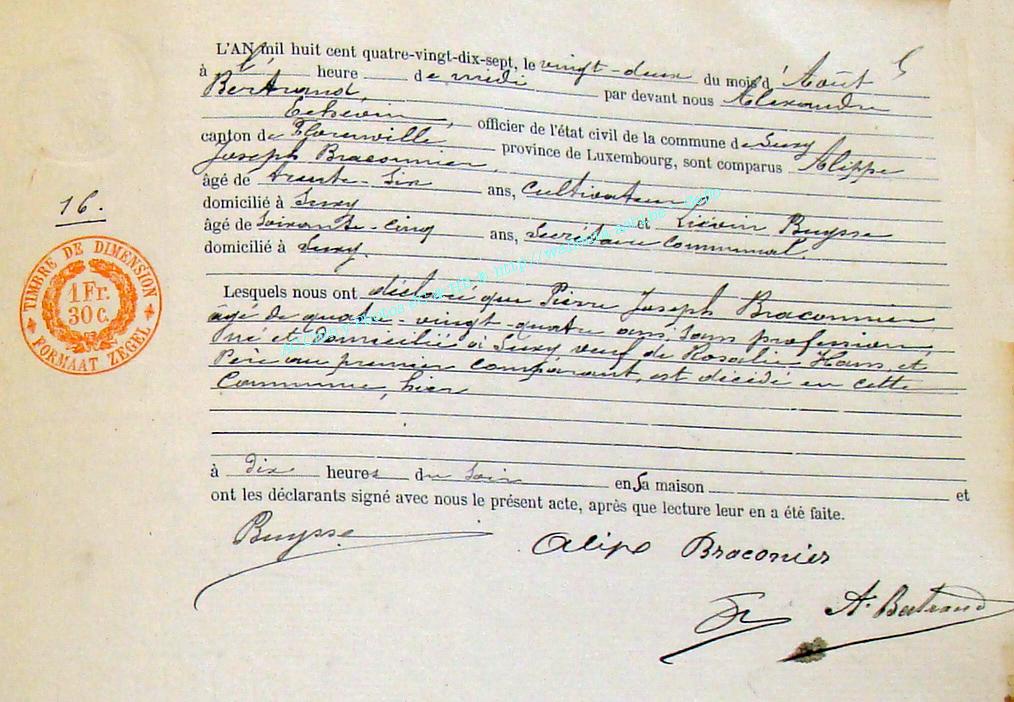 L'AN mil huit cent quatre-vingt-dix-sept, le vingt-deux du mois d'Août
à l' heure de midi par devant nous Alexandre
Bertrand,
Echevin, officier de l'état civil de la commune de Suxy
canton de Florenville province de Luxembourg, sont comparus Alippe
Joseph Braconnier,
âgé de trente-six ans, cultivateur
domicilié à Suxy et Liévin Buysse
âgé de Soixante-cinq ans, Secrétaire Communal
domicilié à Suxy.
16.
TIMBRE DE DIMENSION
1 Fr.
30 C.
FORMAAT ZEGEL
Lesquels nous ont déclaré que Pierre Joseph Braconnier
âgé de quatre-vingt-quatre ans, sans profession,
Né et domicilié à Suxy veuf de Rosalie Hans, et
Père au premier comparant, est décédé en cette
Commune, hier
à dix heures du soir en sa maison et
ont les déclarants signé avec nous le présent acte, après que lecture leur en a été faite.
Buysse
Alipe Braconier
A. Bertrand